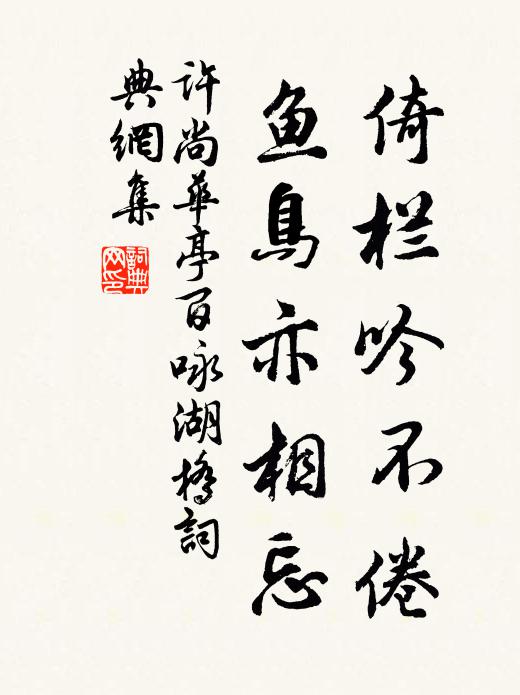 倚栏吟不倦
鱼鸟亦相忘
许尚华亭百咏湖桥词
典網集
詞典
网印